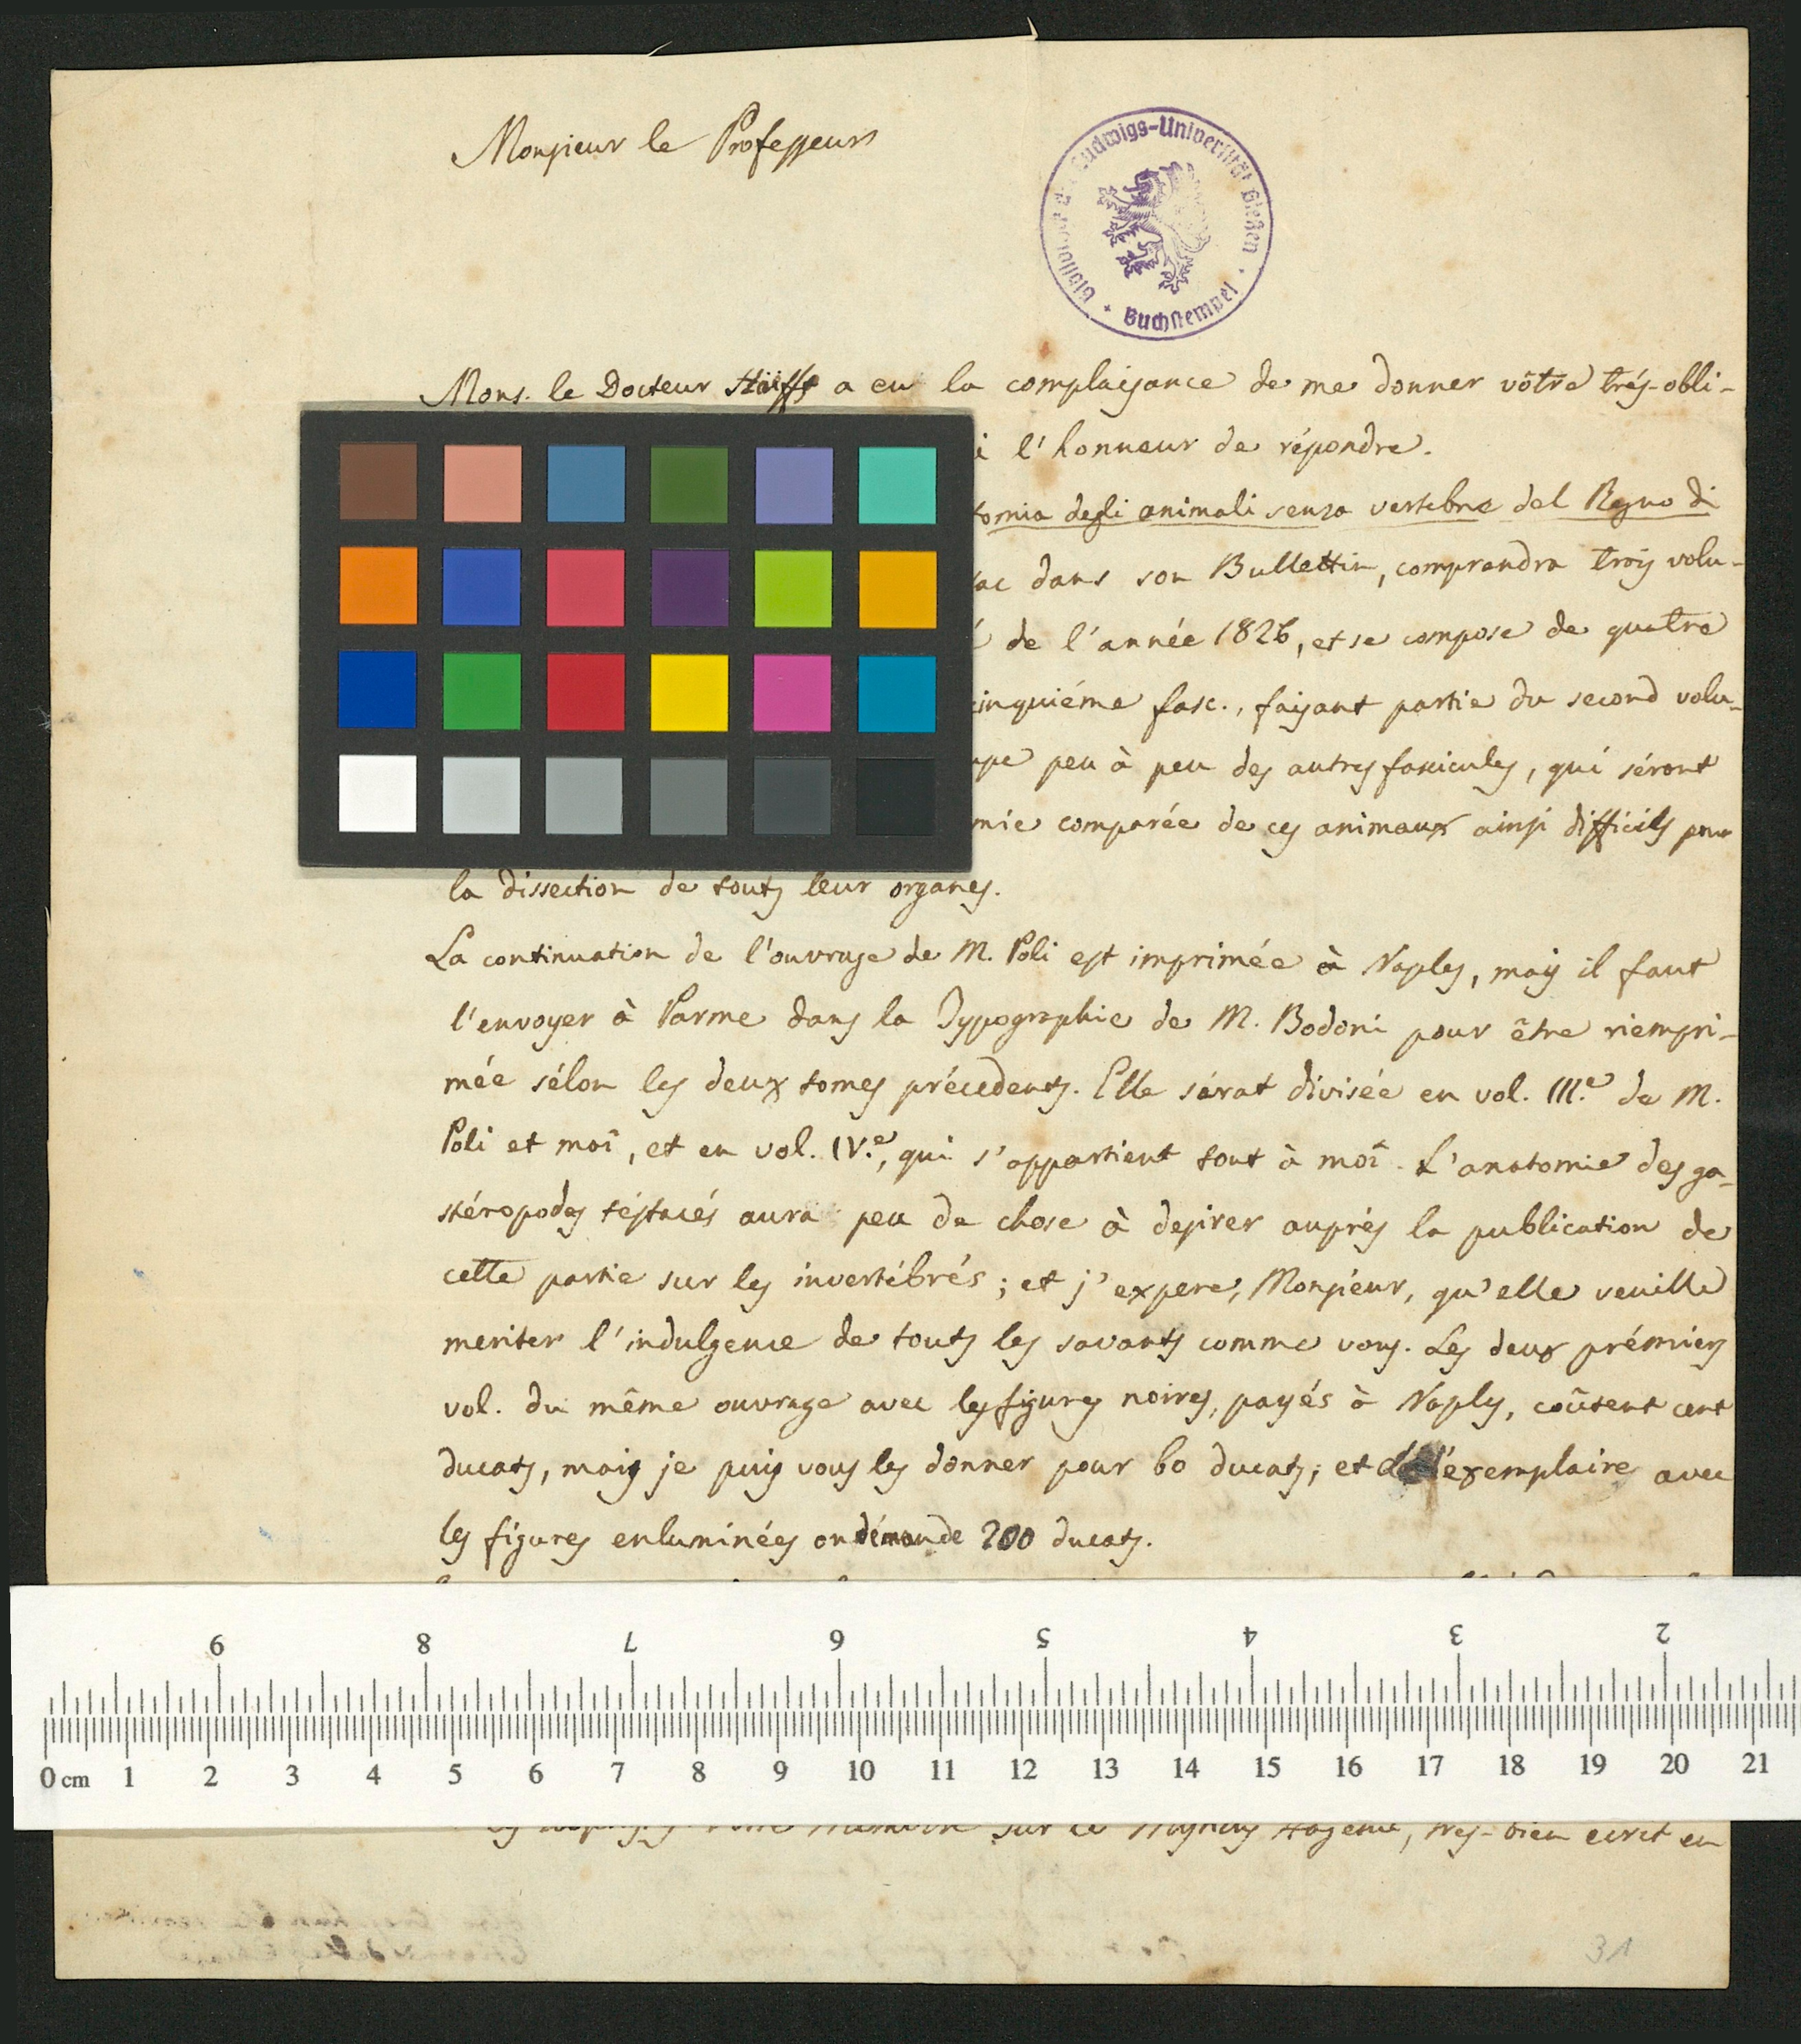 Monsieur le Professeur
Bibliothek der Ludwigs-Universität Gießen
Buchstempel
Mons. le Docteur a eu la complaisance de me donner vôtre trés-obli-
l'honneur de répondre.
tomia degli animali senza vertebre del Regno di
ac dans son Bullettin, comprendra trois volu-
de l'année 1826, et se compose de quatre
cinquiéme fasc., faisant partie du second volu-
pe peu à peu des autres fascicules, qui séront
mie comparée de ces animaux ainsi difficils pour
la dissection de touts leur organes.
La continuation de l'ouvrage de M. Poli est imprimée à Naples, mais il faut
l'envoyer à Parme dans la Typographie de M. Bodoni pour être riempri-
mée sélon les deux tomes précedents. Elle sérat divisée en vol. III.e de M.
Poli et moî, et en vol. IV.e, qui s'appartient tout à moî. L'anatomie des ga-
stéropodes téstacés aura peu de chose à desirer auprés la publication de
cette partie sur les invertébrés; et j'expere, Monsieur, qu'elle veuille
meriter l'indulgence de touts les savants comme vous. Les deux prémiers
vol. du même ouvrage avec les figures noires, payés à Naples, coûtent cent
ducats, mais je puis vous les donner pour 60 ducats; et l'exemplaire avec
les figures enluminées on démande 200 ducats.
9 8 7 6 5 4 3 2
0 cm 1 2 3 4 5 6 7 8 9 10 11 12 13 14 15 16 17 18 19 20 21
sur le tres-bien ecrit en
31